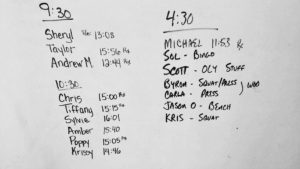 9:30
Sheryl 13:08
Taylor 15:56 Rx
Andrew M. 12:44 Rx
10:30
Chris 15:00 Rx
Tiffany 15:15 Rx
Sylvie 16:01
Amber 15:40
Poppy 15:05 Rx
Krissy 14:46
4:30
MICHAEL 11:53 Rx
SOL - BINGO
SCOTT - OLY STUFF
BYRON - SQUAT/PRESS
CARLA - PRESS
WOD
JASON O - BENCH
KRIS - SQUAT